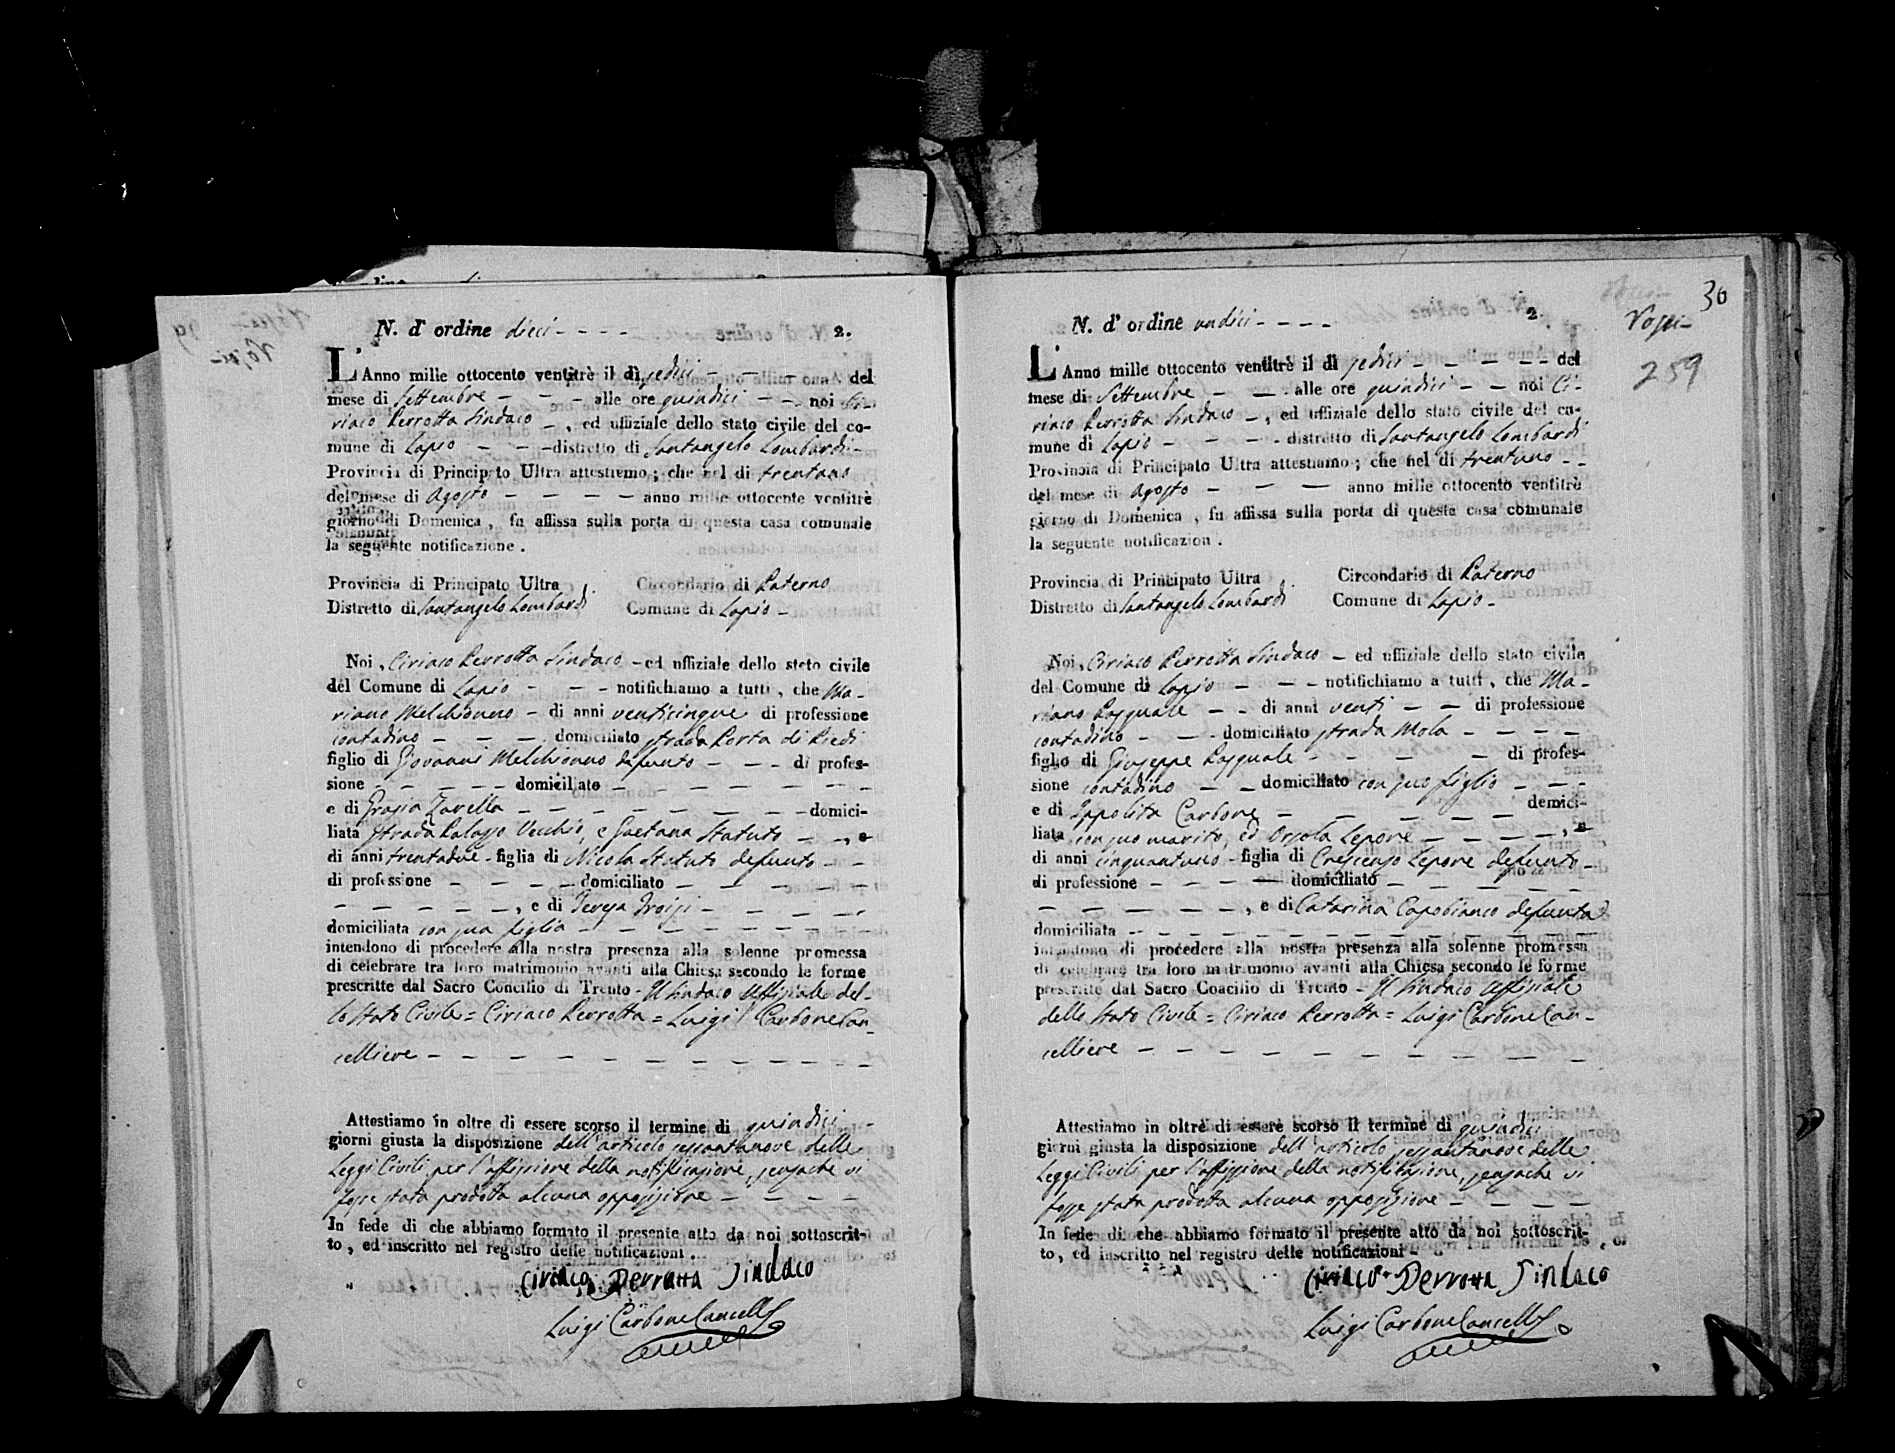 N. d' ordine dieci - - - - 2.
L' Anno mille ottocento ventitrè il dì sedici - - - - del
mese di Settembre - - - alle ore quindici - - noi Ci-
riaco Perrotta Sindaco - , ed uffiziale dello stato civile del co-
mune di Lapio - - - distretto di Santangelo Lombardi -
Provincia di Principato Ultra attestiamo ; che nel dì trentuno
del mese di Agosto - - - - anno mille ottocento ventitrè
giorno di Domenica , fu affissa sulla porta di questa casa comunale
la seguente notificazione .
Provincia di Principato Ultra Circondario di Paterno
Distretto di Santangelo Lombardi Comune di Lapio -
Noi , Ciriaco Perrotta Sindaco - ed uffiziale dello stato civile
del Comune di Lapio - - - notifichiamo a tutti , che Ma-
riano Melchionno - di anni venticinque di professione
contadino - - - domiciliato strada Porta di Piedi
figlio di Giovanni Melchionno defunto - - - di profes-
sione - - - - - domiciliato - - - - - - -
e di Grazia Zarella - - - - - - - - domici-
liata strada Palazzo Vecchio, e Gaetana Statuto - - , e
di anni trentadue - figlia di Nicola Statuto defunto - -
di professione - - - - domiciliato - - - - - -
- - - - - , e di Teresa Troisi - - - - -
domiciliata con sua figlia - - - - - - - -
intendono di procedere alla nostra presenza alla solenne promessa
di celebrare tra loro matrimonio avanti alla Chiesa secondo le forme
prescritte dal Sacro Concilio di Trento - Il Sindaco Uffiziale del-
lo Stato Civile = Ciriaco Perrotta = Luigi Carbone Can-
celliere - - - - - - - - - - - -
Attestiamo in oltre di essere scorso il termine di quindici -
giorni giusta la disposizione dell'articolo sessantanove delle
Leggi Civili per l'affissione della notificazione, senzache vi
fosse stata prodotta alcuna opposizione - - - -
In fede di che abbiamo formato il presente atto da noi sottoscrit-
to , ed inscritto nel registro delle notificazioni .
Ciriaco Perrotta Sindaco
Luigi Carbone Cancell
36
259
N. d' ordine undici - - - - 2.
L' Anno mille ottocento ventitrè il dì sedici - - - - - del
mese di Settembre - - - alle ore quindici - - noi Ci-
riaco Perrotta Sindaco - , ed uffiziale dello stato civile del co-
mune di Lapio - - - - distretto di Santangelo Lombardi
Provincia di Principato Ultra attestiamo ; che nel dì trentuno - -
del mese di Agosto - - - anno mille ottocento ventitrè
giorno di Domenica , fu affissa sulla porta di questa casa comunale
la seguente notificazion .
Provincia di Principato Ultra Circondario di Paterno
Distretto di Santangelo Lombardi Comune di Lapio -
Noi , Ciriaco Perrotta Sindaco - ed uffiziale dello stato civile
del Comune di Lapio - - - notifichiamo a tutti , che Ma-
riano Pasquale - - di anni venti - - di professione
contadino - - - domiciliato strada Mola - - - -
figlio di Giuseppe Pasquale - - - - - di profes-
sione contadino - - domiciliato con suo figlio - - -
e di Ippolita Carbone - - - - - - domici-
liata con suo marito, ed Orsola Lepore - - - - , e
di anni cinquantuno - figlia di Crescenzo Lepore defunto -
di professione - - - - domiciliato - - - - - -
- - - - - - , e di Catarina Capobianco defunta
domiciliata - - - - - - - - - - - -
intendono di procedere alla nostra presenza alla solenne promessa
di celebrare tra loro matrimonio avanti alla Chiesa secondo le forme
prescritte dal Sacro Coacilio di Trento - Il Sindaco Uffiziale
dello Stato Civile = Ciriaco Perrotta = Luigi Carbone Can-
celliere - - - - - - - - - - - -
Attestiamo in oltre di essere scorso il termine di quindici
giorni giusta la disposizione dell'articolo sessantanove delle
Leggi Civili per l'affissione della notificazione, senzache vi
fosse stata prodotta alcuna opposizione - - - -
In fede di che abbiamo formato il presente atto da noi sottoscrit-
to , ed inscritto nel registro delle notificazioni -
Ciriaco Perrotta Sindaco
Luigi Carbone Cancell